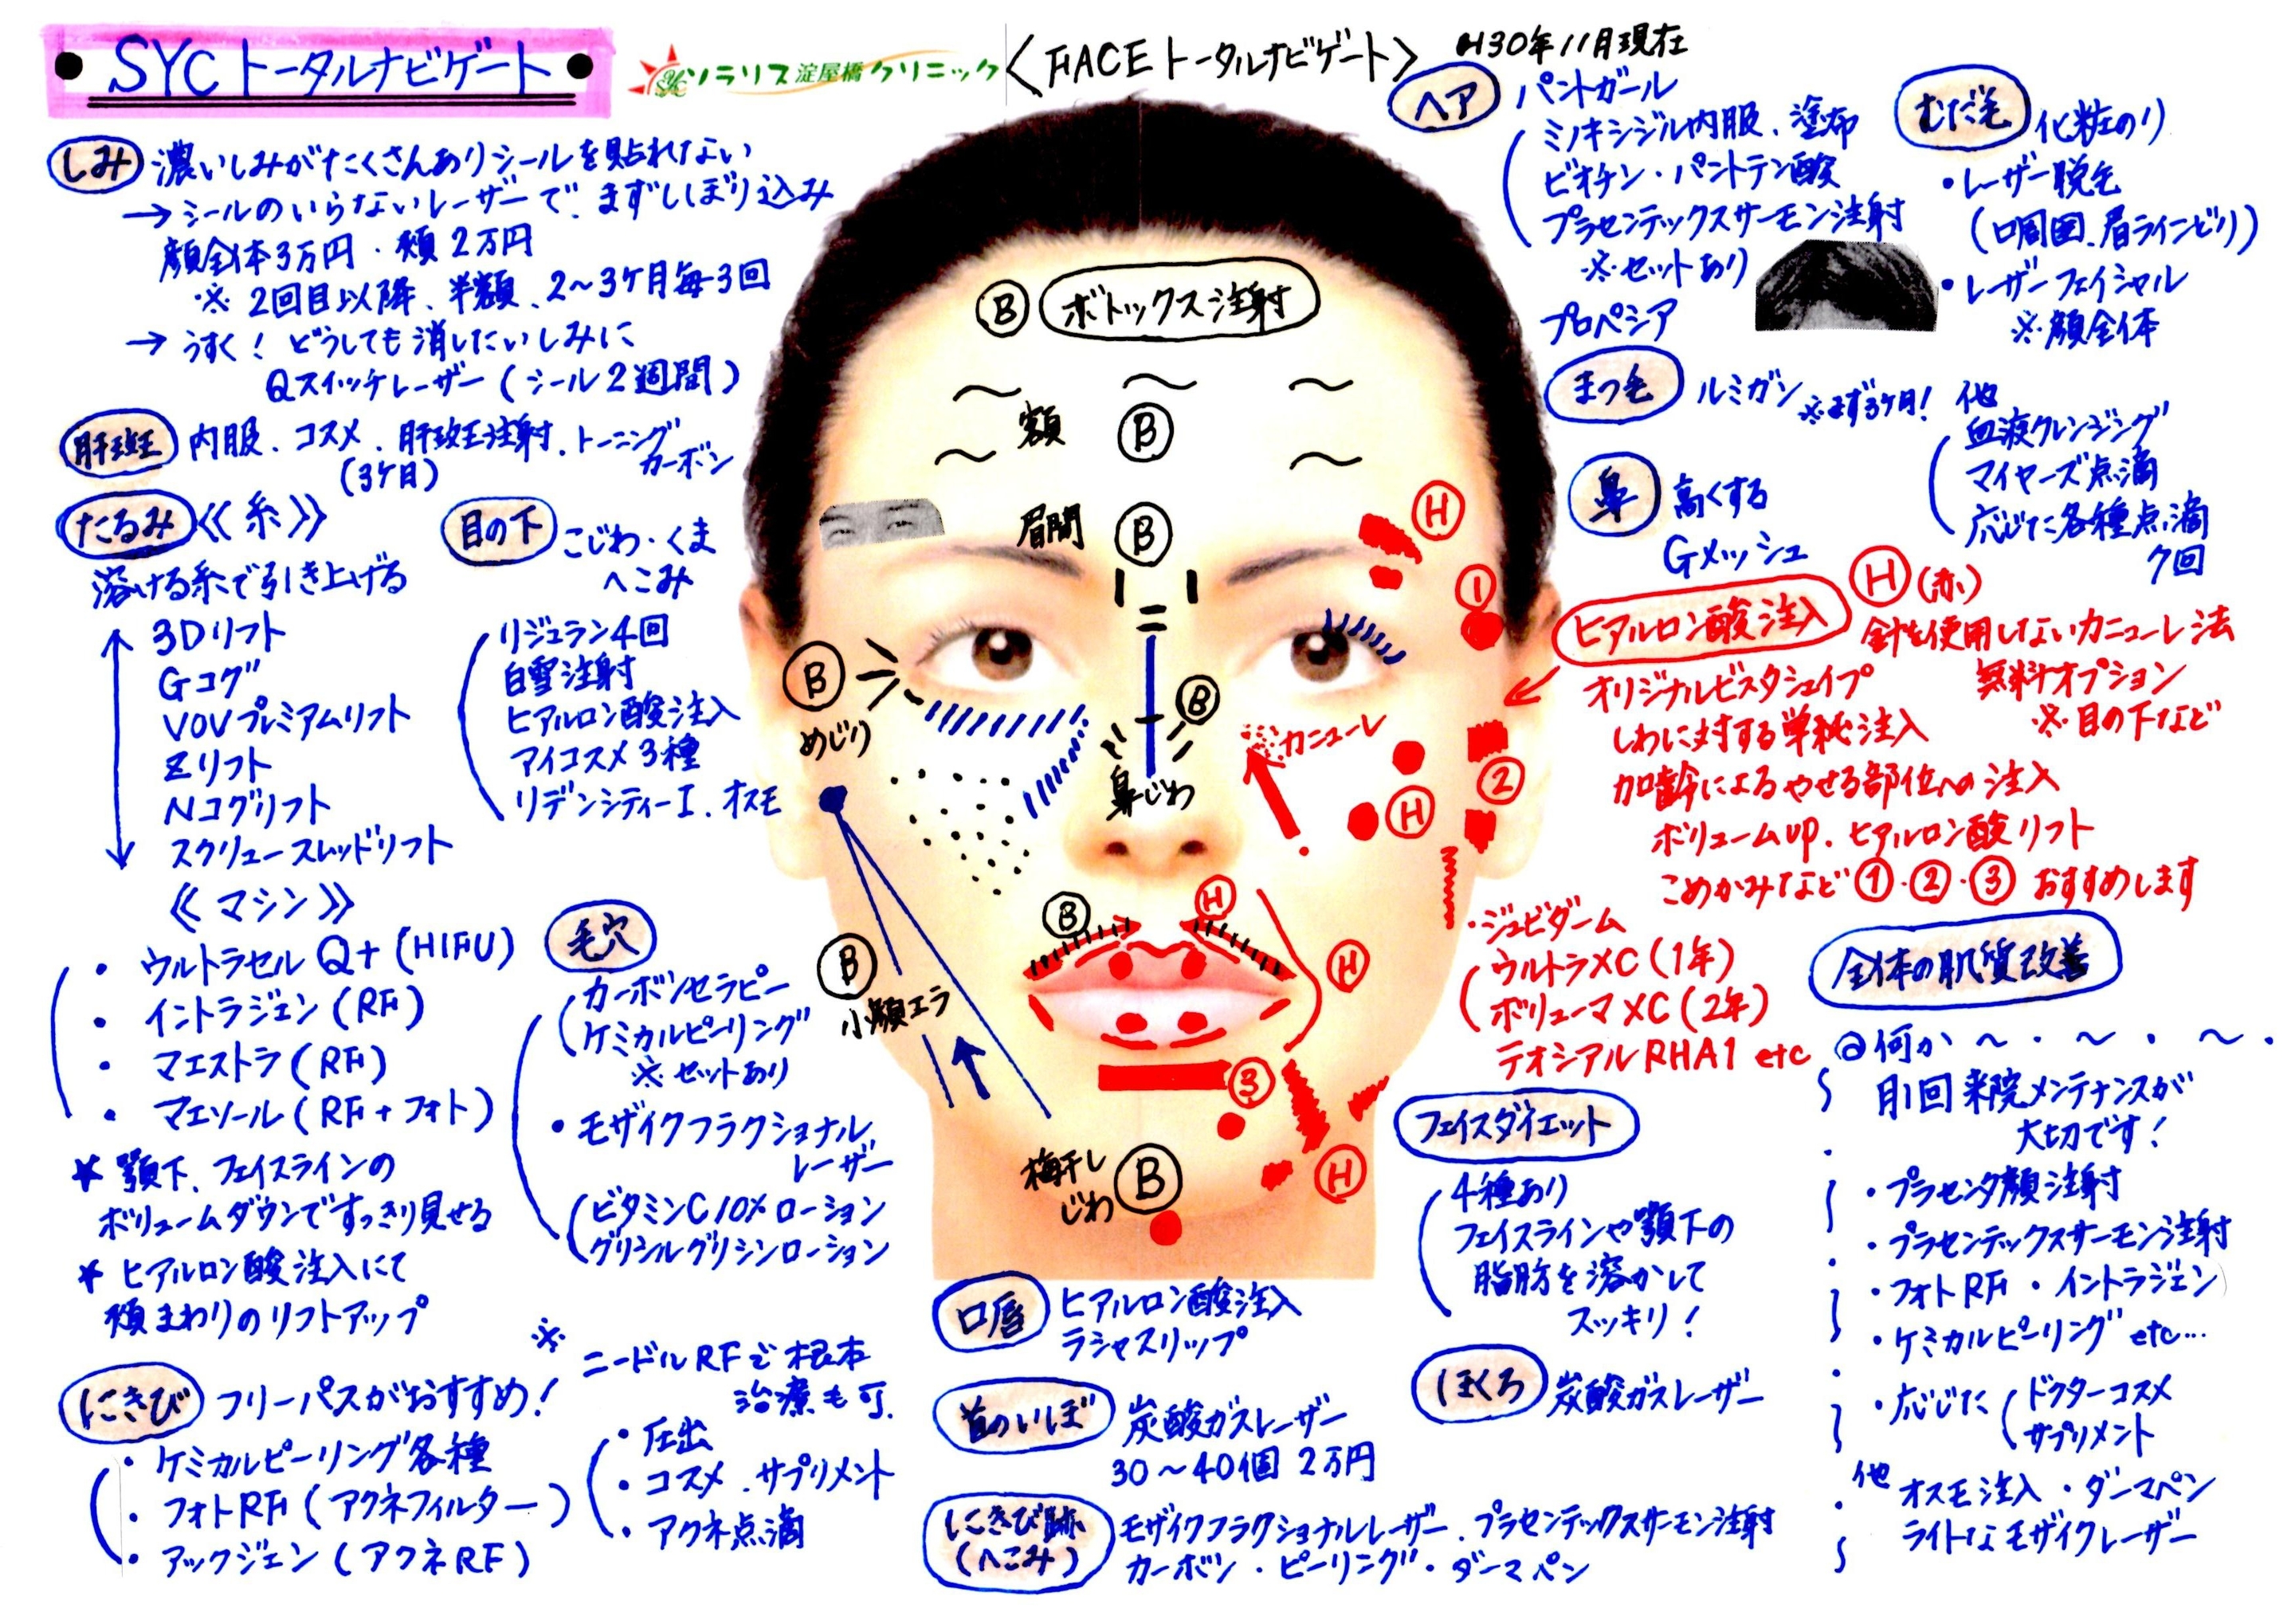 SYCトータルナビゲート
SYC ソラリス淀屋橋クリニック
〈FACEトータルナビゲート〉
H30年11月現在
しみ 濃いしみがたくさんありシールを貼れない
→シールのいらないレーザーで、まずしぼり込み
顔全体3万円・頬2万円
※2回目以降、半額、2〜3ケ月毎3回
→うすく！どうしても消したいしみに
Qスイッチレーザー(シール2週間)
肝斑 内服、コスメ、肝斑注射、トーニング
(3ケ月)
カーボン
たるみ《糸》
溶ける糸で引き上げる
3Dリフト
Gコグ
VOVプレミアムリフト
Zリフト
Nコグリフト
スクリュースレッドリフト
《マシン》
・ウルトラセルQ+(HIFU)
・イントラジェン(RF)
・マエストラ(RF)
・マエソール(RF+フォト)
* 顎下、フェイスラインの
ボリュームダウンですっきり見せる
* ヒアルロン酸注入にて
頬まわりのリフトアップ
目の下 こじわ・くま
へこみ
リジュラン4回
白雪注射
ヒアルロン酸注入
アイコスメ3種
リデンシティーI、オスモ
毛穴
カーボンセラピー
ケミカルピーリング
※セットあり
・モザイクフラクショナル
レーザー
ビタミンC10%ローション
グリシルグリシンローション
にきび フリーパスがおすすめ！
・ケミカルピーリング各種
・フォトRF(アクネフィルター)
・アックジェン(アクネRF)
※ニードルRFで根本
治療も可
・圧出
・コスメ、サプリメント
・アクネ点滴
B ボトックス注射
額 B
眉間 B
B
めじり
B
鼻じわ
B
B
小顔エラ
梅干し
じわ B
H
①
カニューレ
②
H
H
H
③
H
口唇 ヒアルロン酸注入
ラシャスリップ
首のいぼ 炭酸ガスレーザー
30〜40個 2万円
にきび跡
(へこみ)
モザイクフラクショナルレーザー、プラセンテックスサーモン注射
カーボン・ピーリング・ダーマペン
ヘア パントガール
ミノキシジル内服、塗布
ビオチン・パントテン酸
プラセンテックスサーモン注射
※セットあり
プロペシア
むだ毛 化粧のり
・レーザー脱毛
(口周囲、眉ラインどり)
・レーザーフェイシャル
※顔全体
まつ毛 ルミガン ※まず3ケ月！
鼻 高くする
Gメッシュ
他
血液クレンジング
マイヤーズ点滴
応じた各種点滴
7回
ヒアルロン酸注入 H(赤)
針を使用しないカニューレ法
無料オプション
※目の下など
オリジナルビスタシェイプ
しわに対する単純注入
加齢によるやせる部位への注入
ボリュームup、ヒアルロン酸リフト
こめかみなど①・②・③おすすめします
・ジュビダーム
ウルトラXC(1年)
ボリューマXC(2年)
テオシアルRHA1 etc
フェイスダイエット
4種あり
フェイスラインや顎下の
脂肪を溶かして
スッキリ！
ほくろ 炭酸ガスレーザー
全体の肌質改善
@何か〜・〜・〜・
月1回来院メンテナンスが
大切です！
・プラセンタ顔注射
・プラセンテックスサーモン注射
・フォトRF・イントラジェン
・ケミカルピーリング etc…
・応じた
ドクターコスメ
サプリメント
他
オスモ注入・ダーマペン
ライトなモザイクレーザー